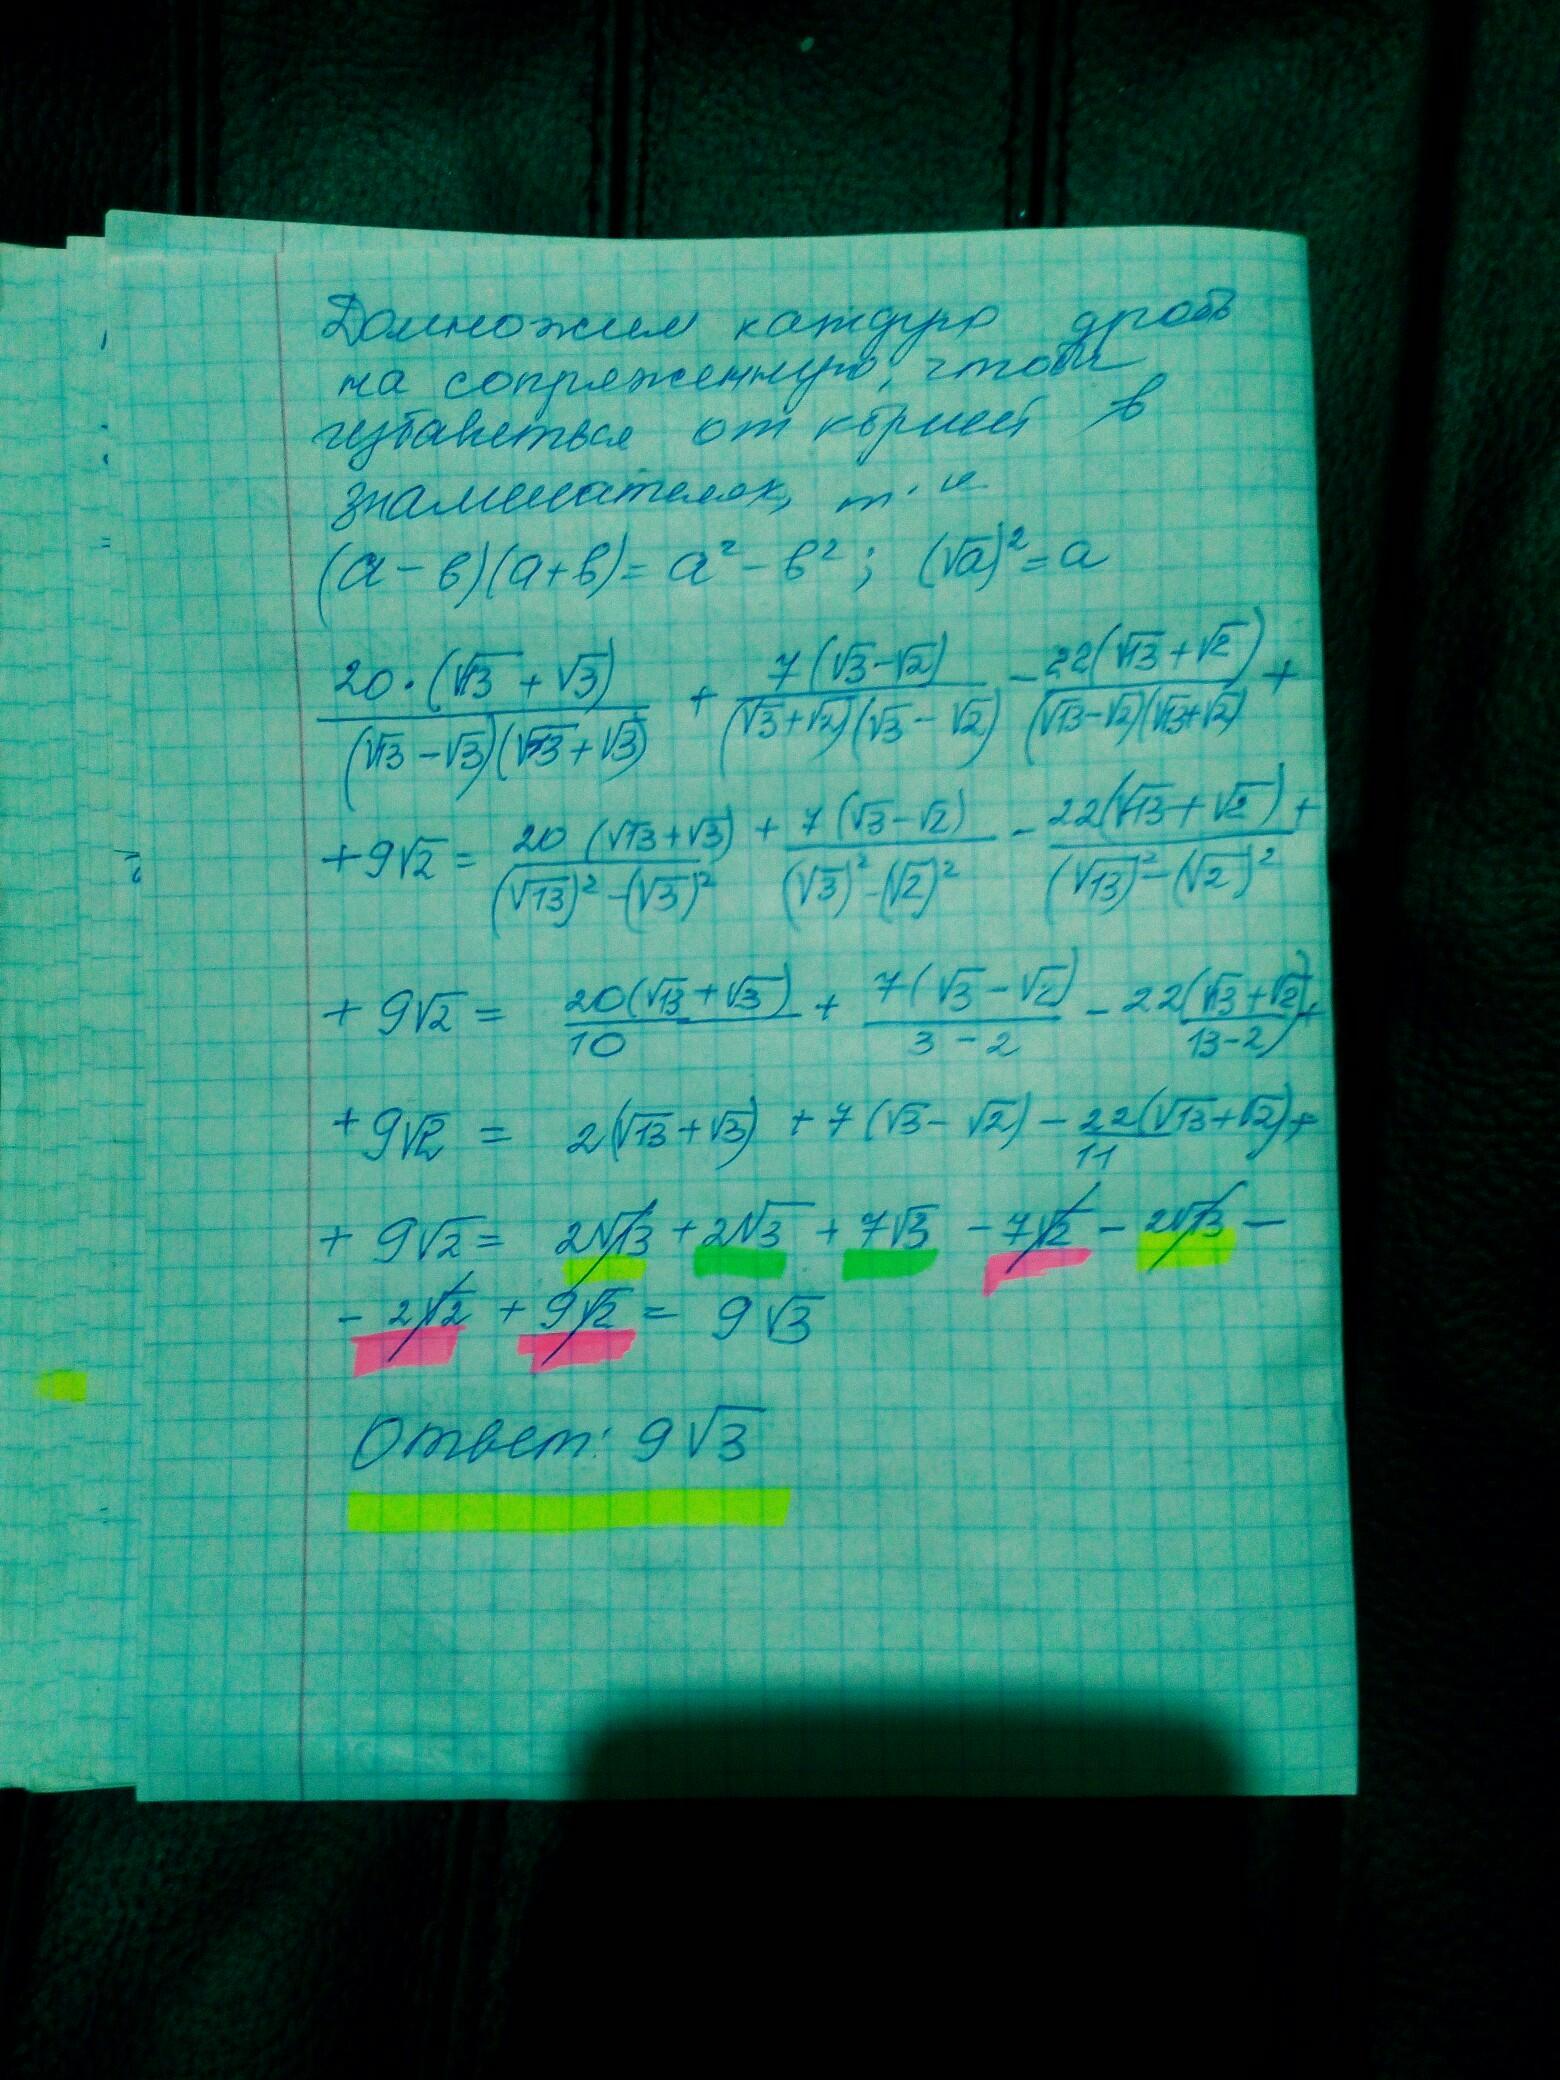 Домножим каждую дробь
на сопряженную, чтобы
избавиться от корней в
знаменателях, т. к
(a-b)(a+b)= a²-b²; (√a)²=a
20·(√13+√3)/(√13-√3)(√13+√3) + 7(√3-√2)/(√3+√2)(√3-√2) - 22(√13+√2)/(√13-√2)(√13+√2) +
+9√2 = 20(√13+√3)/(√13)²-(√3)² + 7(√3-√2)/(√3)²-(√2)² - 22(√13+√2)/(√13)²-(√2)² +
+9√2 = 20(√13+√3)/10 + 7(√3-√2)/3-2 - 22(√13+√2)/13-2 +
+9√2 = 2(√13+√3) + 7(√3-√2) - 22(√13+√2)/11 +
+9√2 = 2√13 + 2√3 + 7√3 - 7√2 - 2√13 -
- 2√2 + 9√2 = 9√3
Ответ: 9√3